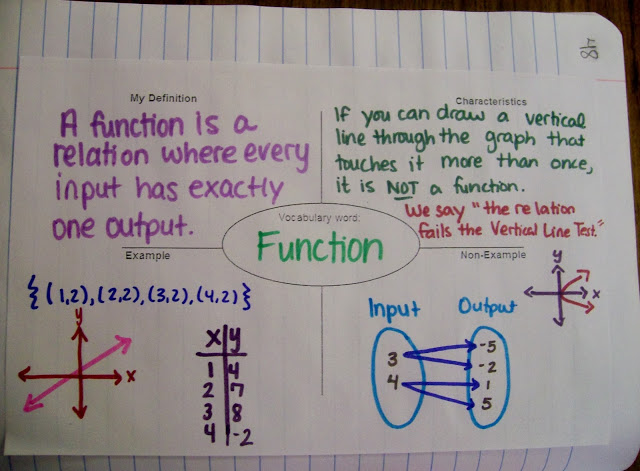 8/7
My Definition
A function is a
relation where every
input has exactly
one output.
Characteristics
If you can draw a vertical
line through the graph that
touches it more than once,
it is NOT a function.
We say "the relation
fails the Vertical Line Test."
Vocabulary word:
Function
Example
{(1,2),(2,2),(3,2),(4,2)}
y
x
X Y
1 4
2 7
3 8
4 -2
Non-Example
y
x
Input Output
3
4
-5
-2
1
5